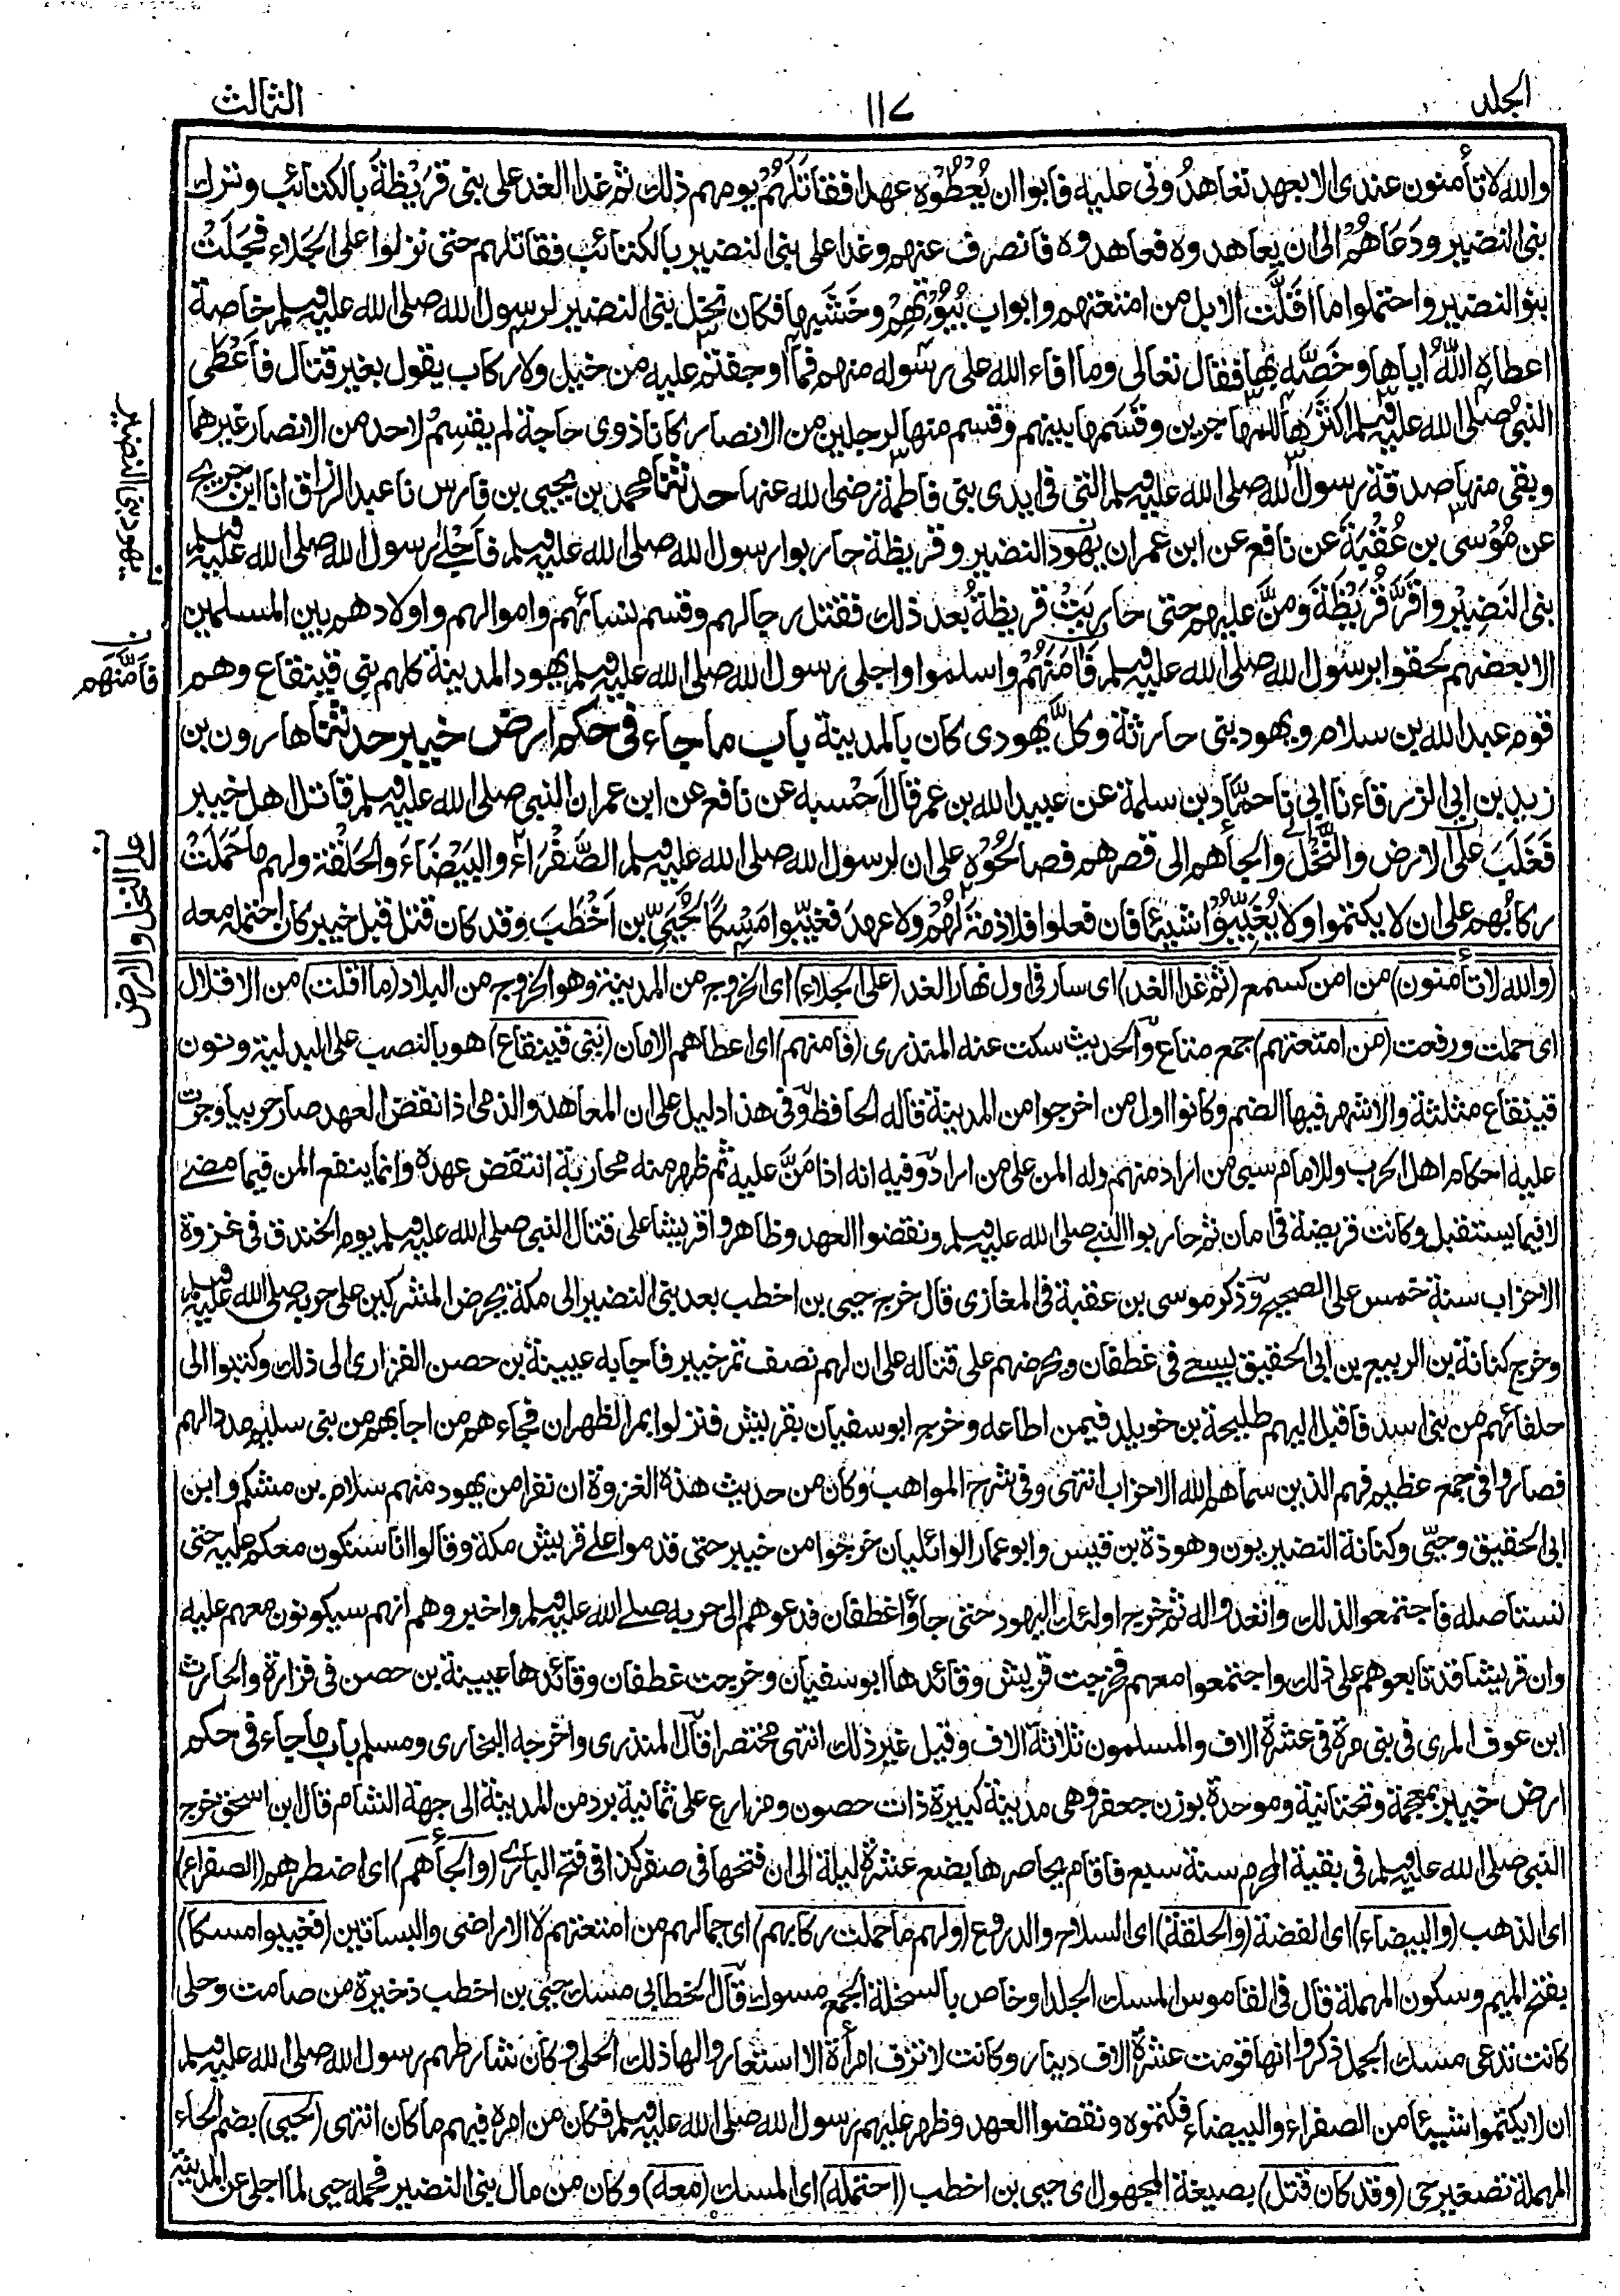 الجلد
١١٧
الثالث
والله لا تأمنون عندى الا بعهد تعاهدُونى عليه فابوا ان يُعْطُوْه عهدا فقاتَلَهُمْ يومهم ذلك ثم غدا الغد على بنى قُرَيْظَةَ بالكتائب وترك
بنى النضير ودَعَاهُمْ الى ان يعاهدوه فعاهدوه فانصرف عنهم وغدا على بنى النضير بالكتائب فقاتلهم حتى نزلوا على الجلاء فجَلَتْ
بنو النضير واحتملوا ما اَقَلَّت الابل من امتعتهم وابواب بُيُوْتِهِمْ وخَشَبِها فكان نخل بنى النضير لرسول الله صلى الله عليه وسلم خاصة
اعطاه اللهُ اياها وخَصَّه بها فقال تعالى وما افاء الله على رسوله منهم فما اوجفتم عليه من خيل ولا ركاب يقول بغير قتال فاَعْطَى
النبىُ صلى الله عليه وسلم اكثَرَها للمهاجرين وقَسَمَها بينهم وقسم منها لرجلين من الانصار كانا ذوى حاجة لم يقسِمْ لاحد من الانصار غيرهما
وبقى منها صدقة رسول الله صلى الله عليه وسلم التى فى ايدى بنى فاطمة رضى الله عنها حدثنا محمد بن يحيى بن فارس نا عبد الرزاق انا ابن جريج
عن مُوْسى بن عُقْبَةَ عن نافع عن ابن عمر ان يهود النضير وقريظة حاربوا رسول الله صلى الله عليه وسلم فاَجْلَے رسول الله صلى الله عليه وسلم
بنى النَضِيْر واقَرَّ قُرَيْظَةَ ومَنَّ عليهم حتى حاربَتْ قريظةُ بعد ذلك فقتل رجالهم وقسم نسائهم واموالهم واولادهم بين المسلمين
الا بعضهم لحقوا برسول الله صلى الله عليه وسلم فَاَمَنَهُمْ واسلموا واجلى رسول الله صلى الله عليه وسلم يهود المدينة كلهم بنى قينقاع وهم
قوم عبد الله بن سلام ويهود بنى حارثة وكلَّ يهودى كان بالمدينة باب ما جاء فى حكم ارض خيبر حدثنا هارون بن
زيد بن ابى الزرقاء نا ابى نا حمَّاد بن سلمة عن عبيد الله بن عمر قال اَحْسبه عن نافع عن ابن عمر ان النبى صلى الله عليه وسلم قاتل اهل خيبر
فَغَلَبَ على الارض والنَّخْل والجأهم الى قصرهم فصالحُوْه على ان لرسول الله صلى الله عليه وسلم الصَّفْرَاءَ والبَيْضَاءَ والحَلْقة ولهم ما حَمَلَتْ
ركابُهم على ان لا يكتموا ولا يُغَيِّبُوْا شيئا فان فعلوا فلا ذمة لَهُمْ ولا عهدَ فغيّبوا مَسْكًا لحُيَيِّ بن اَخْطَبَ وقد كان قتل قبل خيبر كان احتمله معه
يهود بنى النضير
فاَمَّنَهم
على النخل والارض
(والله لا تأمنون) من امن كسمع (ثم غدا الغد) اى سار فى اول نهار الغد (على الجلاء) اى الخروج من المدينة وهو الخروج من البلاد (ما اقلت) من الاقلال
اى حملت ورفعت (من امتعتهم) جمع متاع والحديث سكت عنه المنذرى (فامنهم) اى اعطاهم الامان (بنى قينقاع) هو بالنصب على البدلية ونون
قينقاع مثلثة والاشهر فيها الضم وكانوا اول من اخرجوا من المدينة قاله الحافظ وفى هذا دليل على ان المعاهد والذمى اذا نقض العهد صار حربيا وجرت
عليه احكام اهل الحرب وللامام سبى من اراد منهم وله المن على من اراد وفيه انه اذا مَنَّ عليه ثم ظهر منه محاربة انتقض عهده وانما ينفع المن فيما مضے
لا فيما يستقبل وكانت قريضة فى امان ثم حاربوا النبے صلى الله عليه وسلم ونقضوا العهد وظاهروا قريشا على قتال النبى صلى الله عليه وسلم يوم الخندق فى غزوة
الاحزاب سنة خمس على الصحيح وذكر موسى بن عقبة فى المغازى قال خرج حيى بن اخطب بعد بنى النضير الى مكة يحرض المشركين على حربه صلى الله عليه وسلم
وخرج كنانة بن الربيع بن ابى الحقيق يسعے فى غطفان ويحرضهم على قتاله على ان لهم نصف تمر خيبر فاجابه عيينة بن حصن الفزارى الى ذلك وكتبوا الى
حلفائهم من بنى اسد فاقبل اليهم طليحة بن خويلد فيمن اطاعه وخرج ابو سفيان بقريش فنزلوا بمر الظهران فجاءهم من اجابهم من بنى سليم مددا لهم
فصاروا فى جمع عظيم فهم الذين سماهم الله الاحزاب انتهى وفى شرح المواهب وكان من حديث هذه الغزوة ان نفرا من يهود منهم سلام بن مشكم وابن
ابى الحقيق وحيّى وكنانة النضيريون وهوذة بن قيس وابو عمار الوائليان خرجوا من خيبر حتى قدموا علے قريش مكة وقالوا انا سنكون معكم عليه حتى
نستاصله فاجتمعوا لذلك واتعدوا له ثم خرج اولئك اليهود حتى جاؤا غطفان فدعوهم الى حربه صلے الله عليه وسلم واخبروهم انهم سيكونون معهم عليه
وان قريشا قد تابعوهم على ذلك واجتمعوا معهم فخرجت قريش وقائدها ابو سفيان وخرجت غطفان وقائدها عيينة بن حصن فى فزارة والحارث
ابن عوف المرى فى بنى مرة فى عشرة الاف والمسلمون ثلاثة الاف وقيل غير ذلك انتهى مختصرا قال المنذرى واخرجه البخارى ومسلم باب ما جاء فى حكم
ارض خيبر بمعجمة وتحتانية وموحدة بوزن جعفر وهى مدينة كبيرة ذات حصون ومزارع على ثمانية برد من المدينة الى جهة الشام قال ابن اسحق خرج
النبى صلى الله عليه وسلم فى بقية المحرم سنة سبع فاقام يحاصرها بضع عشرة ليلة الى ان فتحها فى صفر كذا فى فتح البارے (والجأهم) اى اضطرهم (الصفراء)
اى الذهب (والبيضاء) اى الفضة (والحلقة) اى السلاح والدروع (ولهم ما حملت ركابهم) اى جمالهم من امتعتهم لا الاراضى والبساتين (فغيبوا مسكا)
بفتح الميم وسكون المهملة قال فى القاموس المسك الجلد او خاص بالسخلة الجمع مسوك قال الخطابى مسك حيى بن اخطب ذخيرة من صامت وحلى
كانت تدعى مسك الجمل ذكروا انها قومت عشرة الاف دينار وكانت لا تزف امرأة الا استعاروا لها ذلك الحلى وكان شارطهم رسول الله صلى الله عليه وسلم
ان لا يكتموا شيئا من الصفراء والبيضاء فكتموه ونقضوا العهد وظهر عليهم رسول الله صلى الله عليه وسلم فكان من امره فيهم ما كان انتهى (لحيى) بضم الحاء
المهملة تصغير حى (وقد كان قتل) بصيغة المجهول اى حيى بن اخطب (احتمله) اى المسك (معه) وكان من مال بنى النضير فحمله حيى لما اجلى عن المدينة